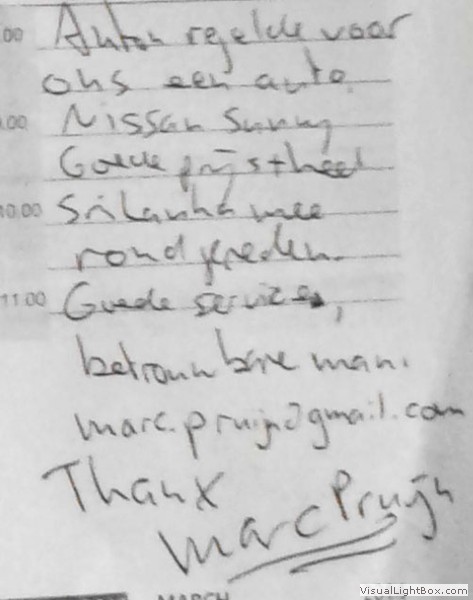 .00
Anton regelde voor
ons een auto.
.00
Nissan Sunny
Goede prijs + heel
10.00
Sri Lanka mee
rond gereden.
11.00
Goede services,
betrouwbare man.
marc.pruijn@gmail.com
Thanx
Marc Pruijn
MARCH
VisualLightBox.com